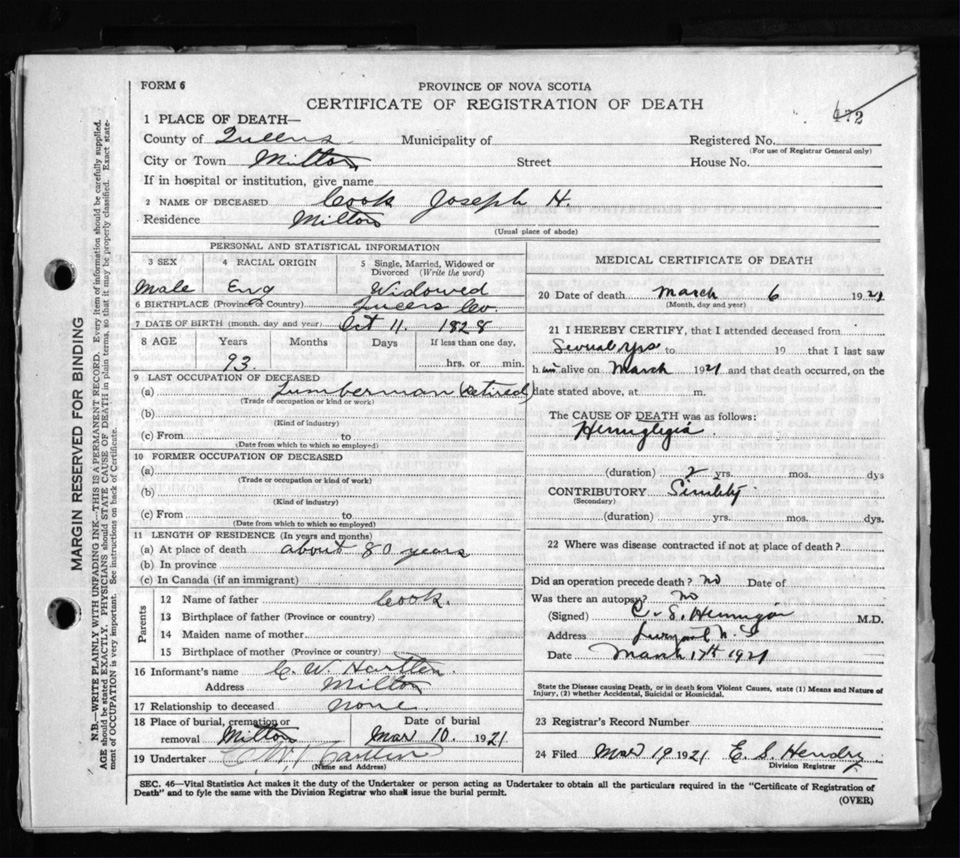 FORM 6
PROVINCE OF NOVA SCOTIA
CERTIFICATE OF REGISTRATION OF DEATH
172
1 PLACE OF DEATH—
County of Queens Municipality of Registered No.
(For use of Registrar General only)
City or Town Milton Street House No.
If in hospital or institution, give name
2 NAME OF DECEASED Cook Joseph H.
Residence Milton
(Usual place of abode)
PERSONAL AND STATISTICAL INFORMATION
3 SEX 4 RACIAL ORIGIN 5 Single, Married, Widowed or Divorced (Write the word)
Male Eng Widowed
6 BIRTHPLACE (Province or Country) Queens Co.
7 DATE OF BIRTH (month, day and year) Oct 11. 1828
8 AGE Years Months Days If less than one day,
93. hrs. or min.
9 LAST OCCUPATION OF DECEASED
(a) Lumberman (retired)
(Trade of occupation or kind or work)
(b)
(Kind of industry)
(c) From to
(Date from which to which so employed)
10 FORMER OCCUPATION OF DECEASED
(a)
(Trade or occupation or kind of work)
(b)
(Kind of industry)
(c) From to
(Date from which to which so employed)
11 LENGTH OF RESIDENCE (In years and months)
(a) At place of death about 80 years
(b) In province
(c) In Canada (if an immigrant)
Parents
12 Name of father Cook.
13 Birthplace of father (Province or country)
14 Maiden name of mother
15 Birthplace of mother (Province or country)
16 Informant's name C. W. Hartlen.
Address Milton
17 Relationship to deceased none
18 Place of burial, cremation or removal Milton Date of burial Mar 10. 1921
19 Undertaker C. W. Hartlen
(Name and Address)
MEDICAL CERTIFICATE OF DEATH
20 Date of death March 6 1921
(Month, day and year)
21 I HEREBY CERTIFY, that I attended deceased from
Several yrs to 19 that I last saw
him alive on March 1921 and that death occurred, on the
date stated above, at m.
The CAUSE OF DEATH was as follows:
Hemiplegia
(duration) 2 yrs. mos. dys
CONTRIBUTORY
(Secondary)
(duration) yrs. mos. dys.
22 Where was disease contracted if not at place of death?
Did an operation precede death? no Date of
Was there an autopsy? no
(Signed) M.D.
Address N.S
Date March 17th 1921
State the Disease causing Death, or in death from Violent Causes, state (1) Means and Nature of Injury, (2) whether Accidental, Suicidal or Homicidal.
23 Registrar's Record Number
24 Filed Mar 19 1921 E. S. Hendry
Division Registrar
SEC. 46—Vital Statistics Act makes it the duty of the Undertaker or person acting as Undertaker to obtain all the particulars required in the "Certificate of Registration of
Death" and to fyle the same with the Division Registrar who shall issue the burial permit.
(OVER)
MARGIN RESERVED FOR BINDING
N.B.—WRITE PLAINLY WITH UNFADING INK—THIS IS A PERMANENT RECORD. Every item of information should be carefully supplied.
AGE should be stated EXACTLY. PHYSICIANS should STATE CAUSE OF DEATH in plain terms, so that it may be properly classified. Exact statement of OCCUPATION is very important. See instructions on back of Certificate.